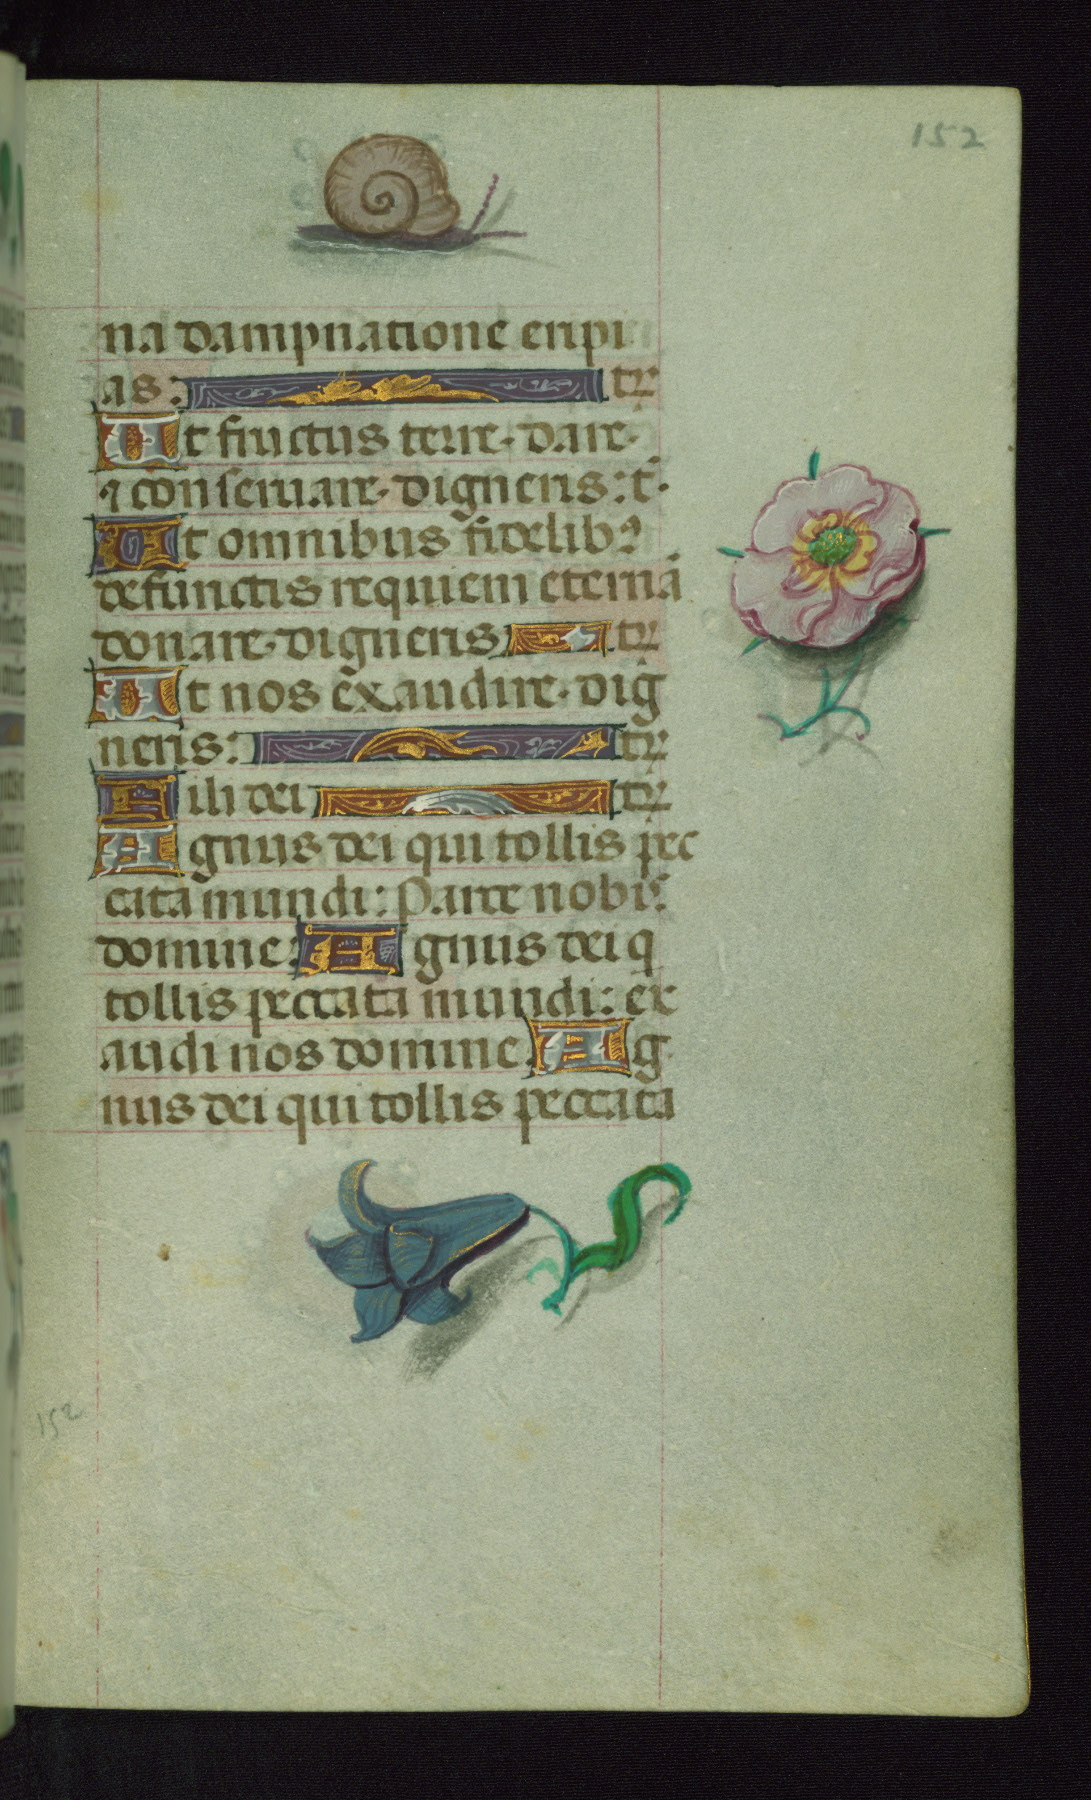 152
na dampnatione eripi
as: tr̄
Ut fructus terre. dare.
⁊ conseruare. digneris: t̄.
Ut omnibus fidelibꝰ
defunctis requiem eternā
donare. digneris tr̄
Ut nos exaudire. dig
neris: tr̄
Fili dei tr̄
Agnus dei qui tollis pec
cata mundi: Parce nobis.
domine: Agnus dei q
tollis peccata mundi: ex
audi nos domine. Ag
nus dei qui tollis peccata
152